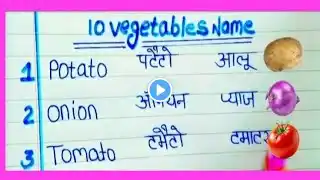 10 vegetables Name
1 Potato पटैटो आलू
2 Onion अनियन प्याज
3 Tomato टमैटो टमाटर